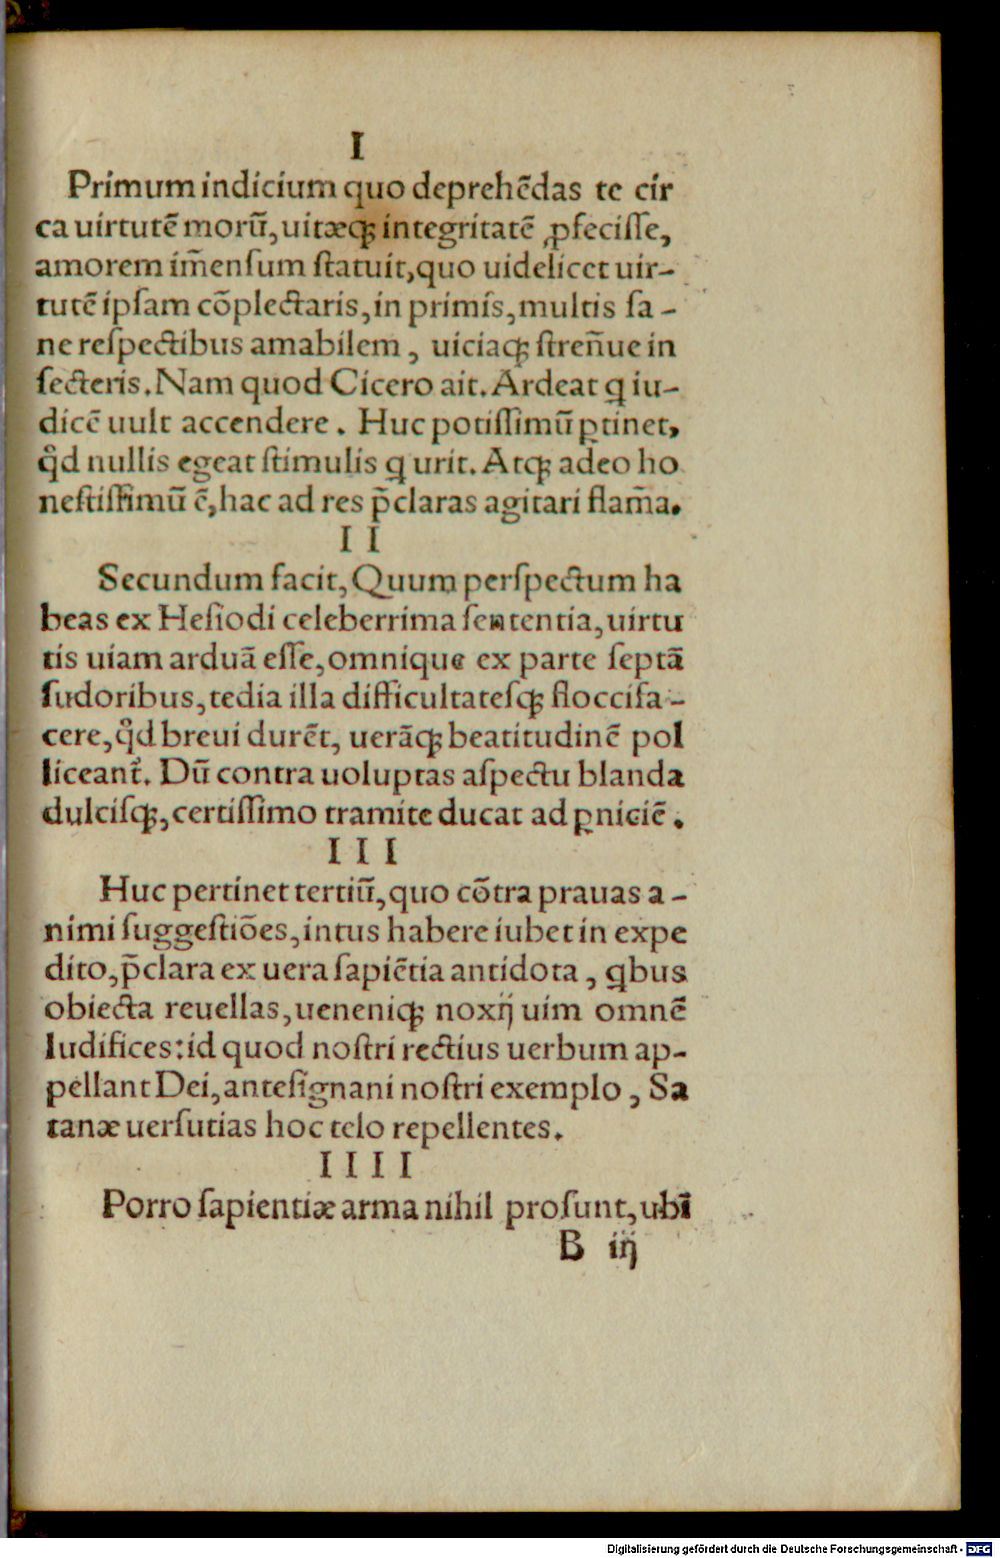 I
Primum indicium quo deprehēdas te cir
ca uirtutē morū, uitæq; integritatē ꝓfeciſſe,
amorem im̄enſum ſtatuit, quo uidelicet uir-
tutē ipſam cōplectaris, in primis, multis ſa-
ne reſpectibus amabilem, uiciaq; ſtren̄ue in
ſecteris. Nam quod Cicero ait. Ardeat ꝗ iu-
dicē uult accendere. Huc potiſſimū ꝑtinet,
ꝙd nullis egeat ſtimulis ꝗ urit. Atq; adeo ho
neſtiſſimū ē, hac ad res p̄claras agitari flam̄a.
I I
Secundum facit, Quum perſpectum ha
beas ex Heſiodi celeberrima ſententia, uirtu
tis uiam arduā eſſe, omnique ex parte ſeptā
ſudoribus, tedia illa difficultateſq; floccifa-
cere, ꝙd breui durēt, uerāq; beatitudinē pol
liceant᷑. Dū contra uoluptas aſpectu blanda
dulciſq;, certiſſimo tramite ducat ad ꝑniciē.
I I I
Huc pertinet tertiū, quo cōtra prauas a-
nimi ſuggeſtiōes, intus habere iubet in expe
dito, p̄clara ex uera ſapiētia antidota, ꝗbus
obiecta reuellas, ueneniq; noxij uim omnē
ludifices: id quod noſtri rectius uerbum ap-
pellant Dei, anteſignani noſtri exemplo, Sa
tanæ uerſutias hoc telo repellentes.
I I I I
Porro ſapientiæ arma nihil proſunt, ubi
B iij
Digitalisierung gefördert durch die Deutsche Forschungsgemeinschaft - DFG